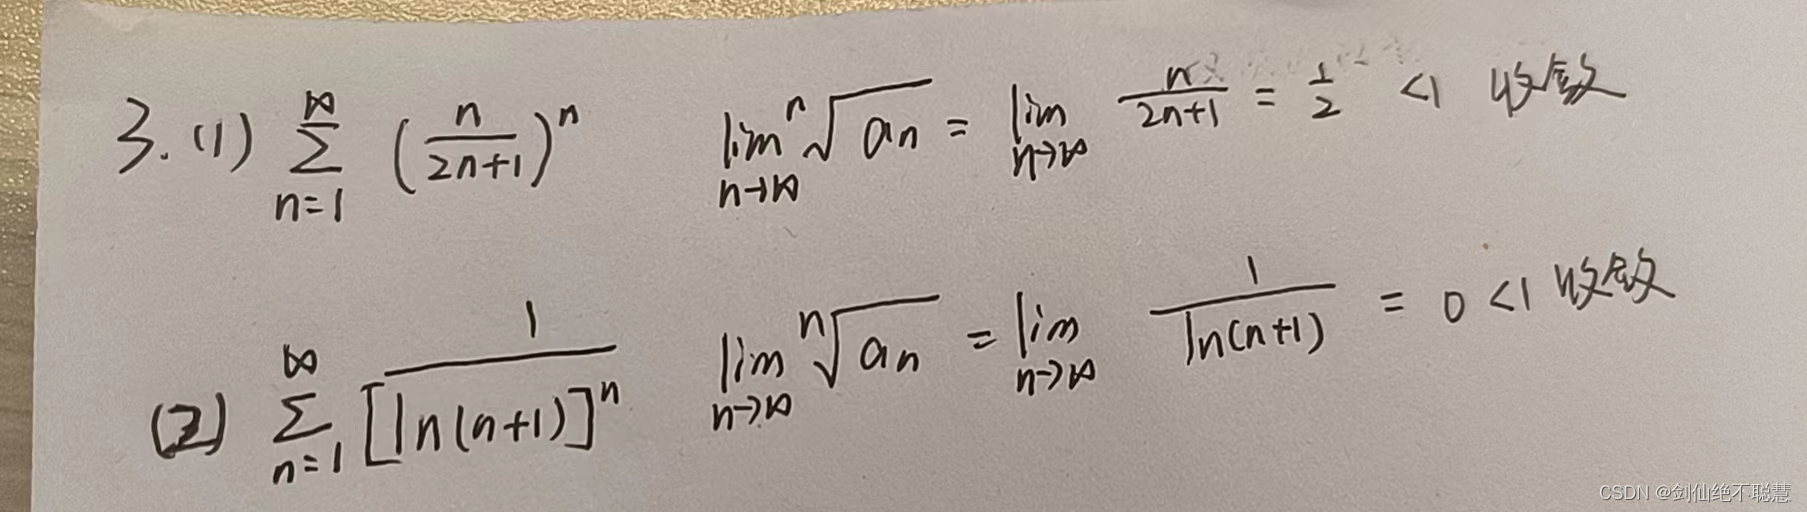 3. (1) \sum_{n=1}^{\infty} (\frac{n}{2n+1})^n  \lim_{n→∞} \sqrt[n]{a_n} = \lim_{n→∞} \frac{n}{2n+1} = \frac{1}{2} <1 收敛
(2) \sum_{n=1}^{\infty} \frac{1}{[ln(n+1)]^n}  \lim_{n→∞} \sqrt[n]{a_n} = \lim_{n→∞} \frac{1}{ln(n+1)} = 0 <1 收敛
CSDN @剑仙绝不聪慧